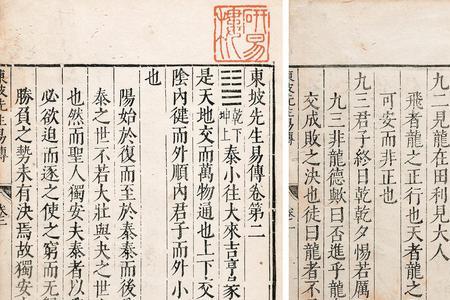 九二見龍在田利見大人
飛者龍之正行也天者龍之
可安而非正也
九三君子終日乾乾夕惕若厲
九三非龍德歟曰否進乎龍
交成敗之決也徒曰龍者不
東坡先生易傳
研易樓
東坡先生易傳卷第二
䷊乾下坤上泰小往大來吉亨彖
是天地交而萬物通也上下交
陰內健而外順內君子而外小
也
陽始於復而至於泰泰而後
泰之世不若大壯與夬之世
也然而聖人獨安夫泰者以
必欲迫而逐之使之窮而无
勝負之勢未有決焉故獨安
東坡先生易傳 卷二